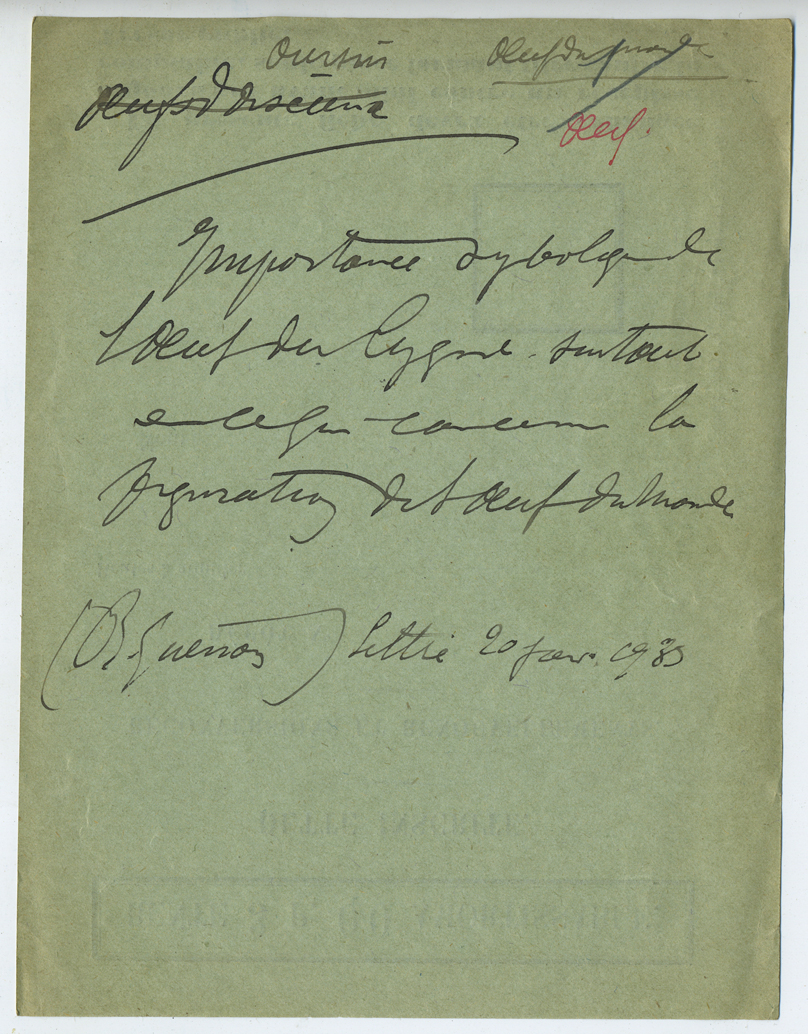 oursin Oeuf du monde
Oeufs d'
Oeuf.
Importance symbolique de
l'Oeuf du Cygne surtout
en ce qui concerne la
figuration de l'Oeuf du Monde
(R. Guénon) Lettre 20 janv. 1933